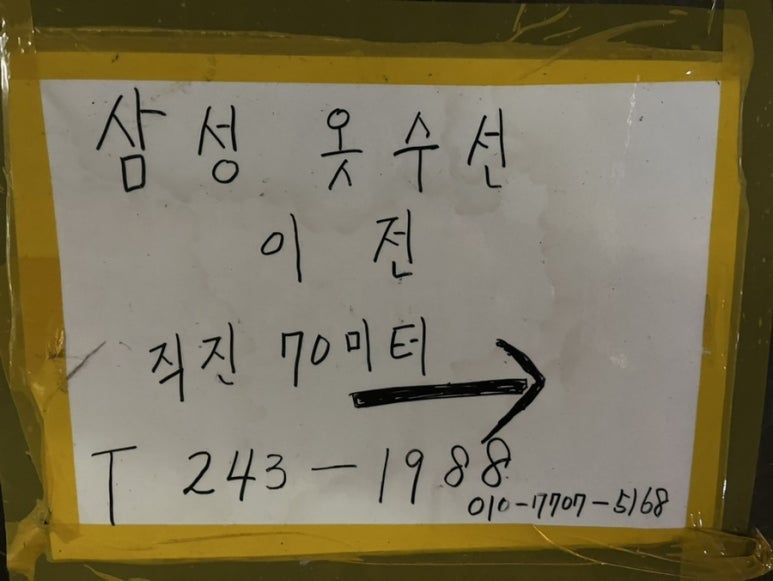 삼성 옷수선
이전
직진 70미터
T 243-1988
010-7707-5168